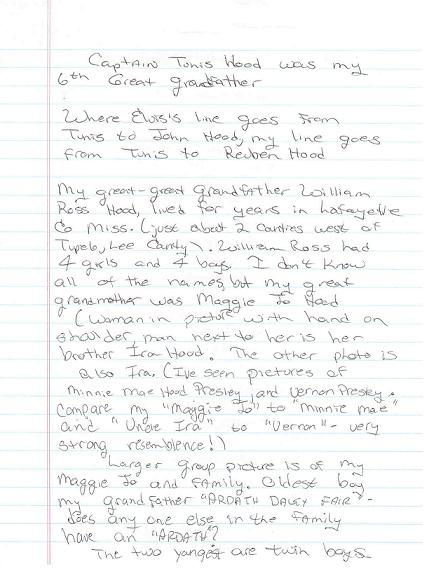 Captain Tunis Hood was my
6th Great grandfather
Where Elvis's line goes from
Tunis to John Hood, my line goes
from Tunis to Reuben Hood
My great-great Grandfather William
Ross Hood, lived for years in Lafayette
Co Miss. (just about 2 Counties west of
Tupelo, Lee County). William Ross had
4 girls and 4 boys. I don't know
all of the names, but my great
grandmother was Maggie Jo Hood
(woman in picture with hand on
shoulder, man next to her is her
brother Ira Hood. The other photo is
also Ira. (I've seen pictures of
Minnie Mae Hood Presley, and Vernon Presley.
Compare my "Maggie Jo" to "Minnie Mae"
and "Uncle Ira" to "Vernon" - very
strong resemblence!)
Larger group picture is of my
Maggie Jo and Family. Oldest boy
my grandfather "ARDATH DALEY FAIR" -
does any one else in the Family
have an "ARDATH"?
The two yangest are twin boys.